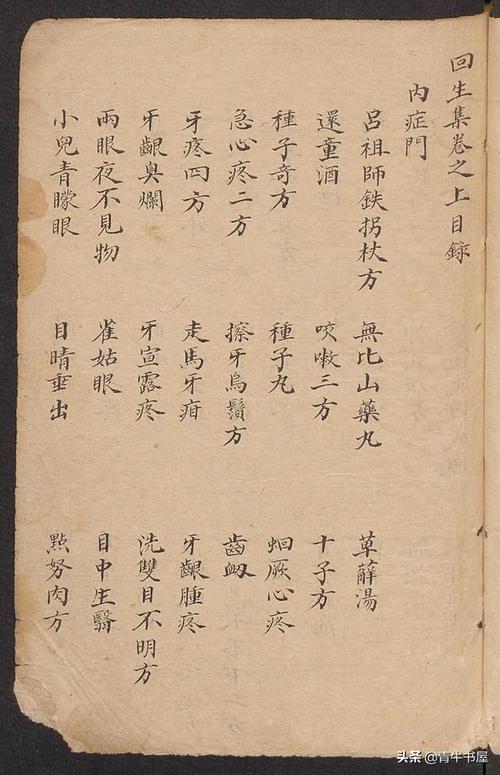 回生集卷之上目錄
內症門
呂祖師鉄拐杖方 無比山藥丸 萆薢湯
還童酒 咳嗽三方 十子方
種子奇方 種子丸 蛔厥心疼
急心疼二方 擦牙烏鬚方 齒衂
牙疼四方 走馬牙疳 牙齦腫疼
牙齦臭爛 牙宣露疼 洗雙目不明方
兩眼夜不見物 雀姑眼 目中生翳
小兒青朦眼 目睛垂出 點努肉方
头条 @青牛书屋